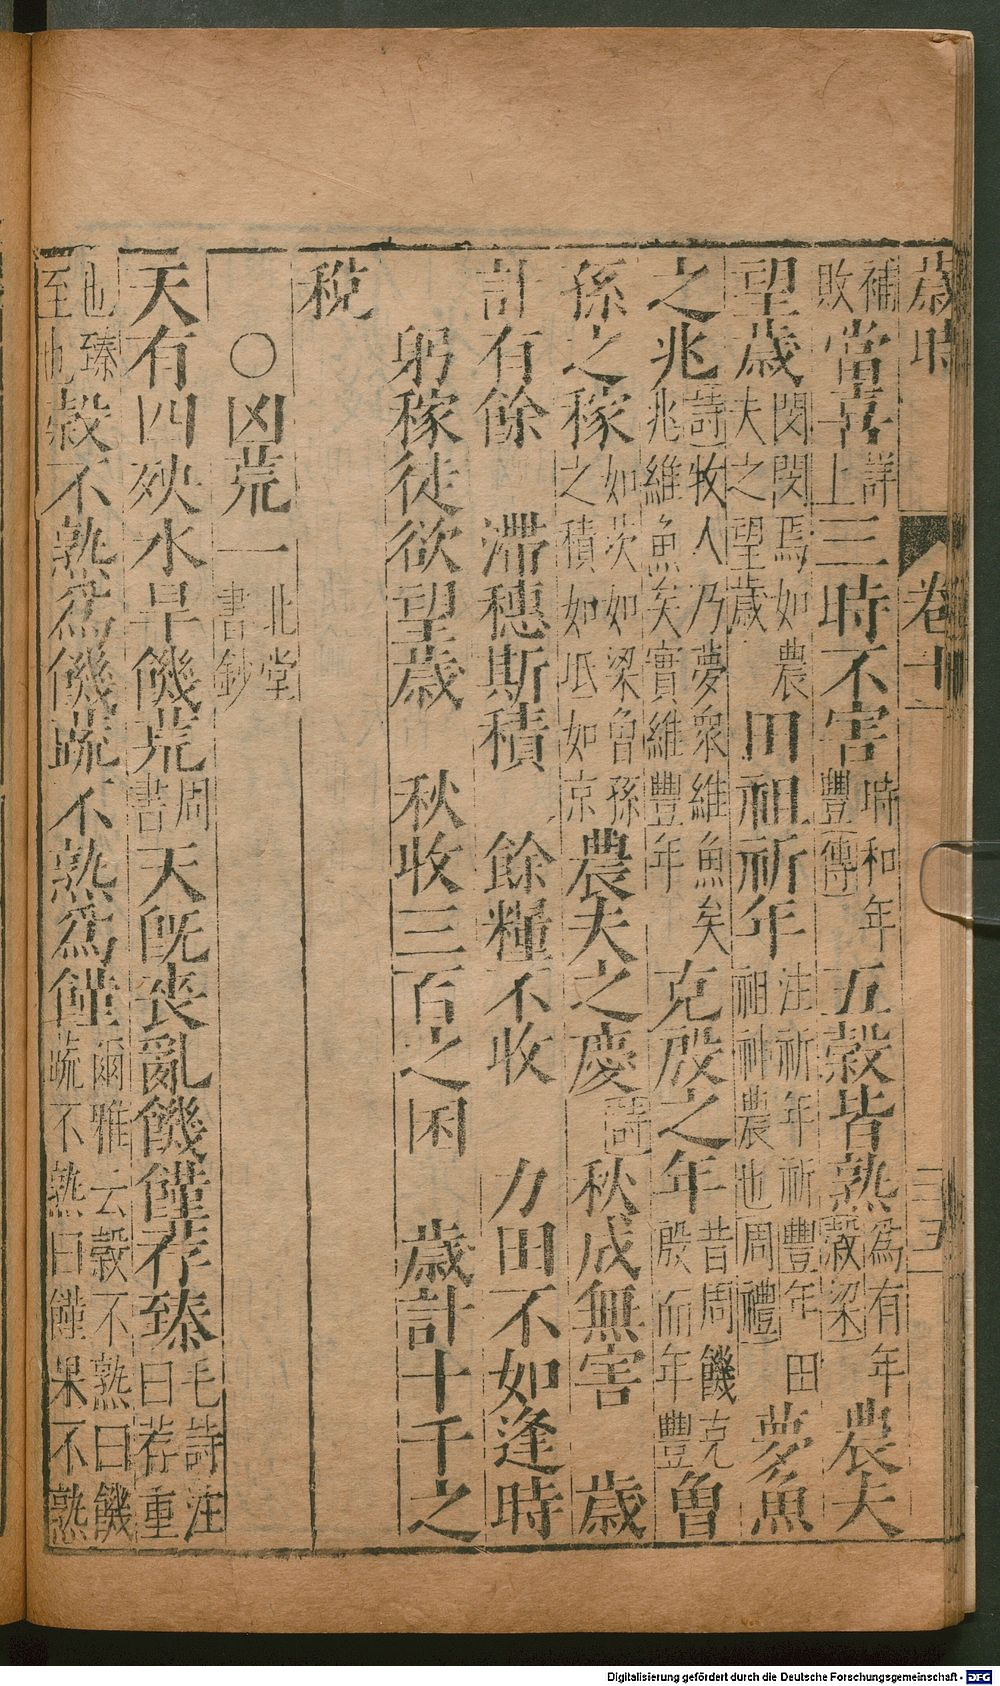 歲時 卷十一 三五
補敗 詳上 三時不害 時和年豐傳 五穀皆熟 爲有年穀梁 農夫
望歲 閔閔焉如農夫之望歲 田祖祈年 注祈年祈豐年田祖神農也周禮 夢魚
之兆 詩牧人乃夢衆維魚矣兆維魚矣實維豐年 克殷之年 昔周饑克殷而年豐 曾
孫之稼 如茨如梁曾孫之積如坻如京 農夫之慶 詩 秋成無害 歲
計有餘 滯穗斯積 餘糧不收 力田不如逢時
躬稼徒欲望歲 秋收三百之囷 歲計十千之
稅
○凶荒一 北堂書鈔
天有四殃水旱饑荒 周書 天旣喪亂饑饉荐臻 毛詩注曰荐重
也臻至也 穀不熟爲饑蔬不熟爲饉 爾雅云穀不熟曰饑蔬不熟曰饉果不熟
Digitalisierung gefördert durch die Deutsche Forschungsgemeinschaft - DFG